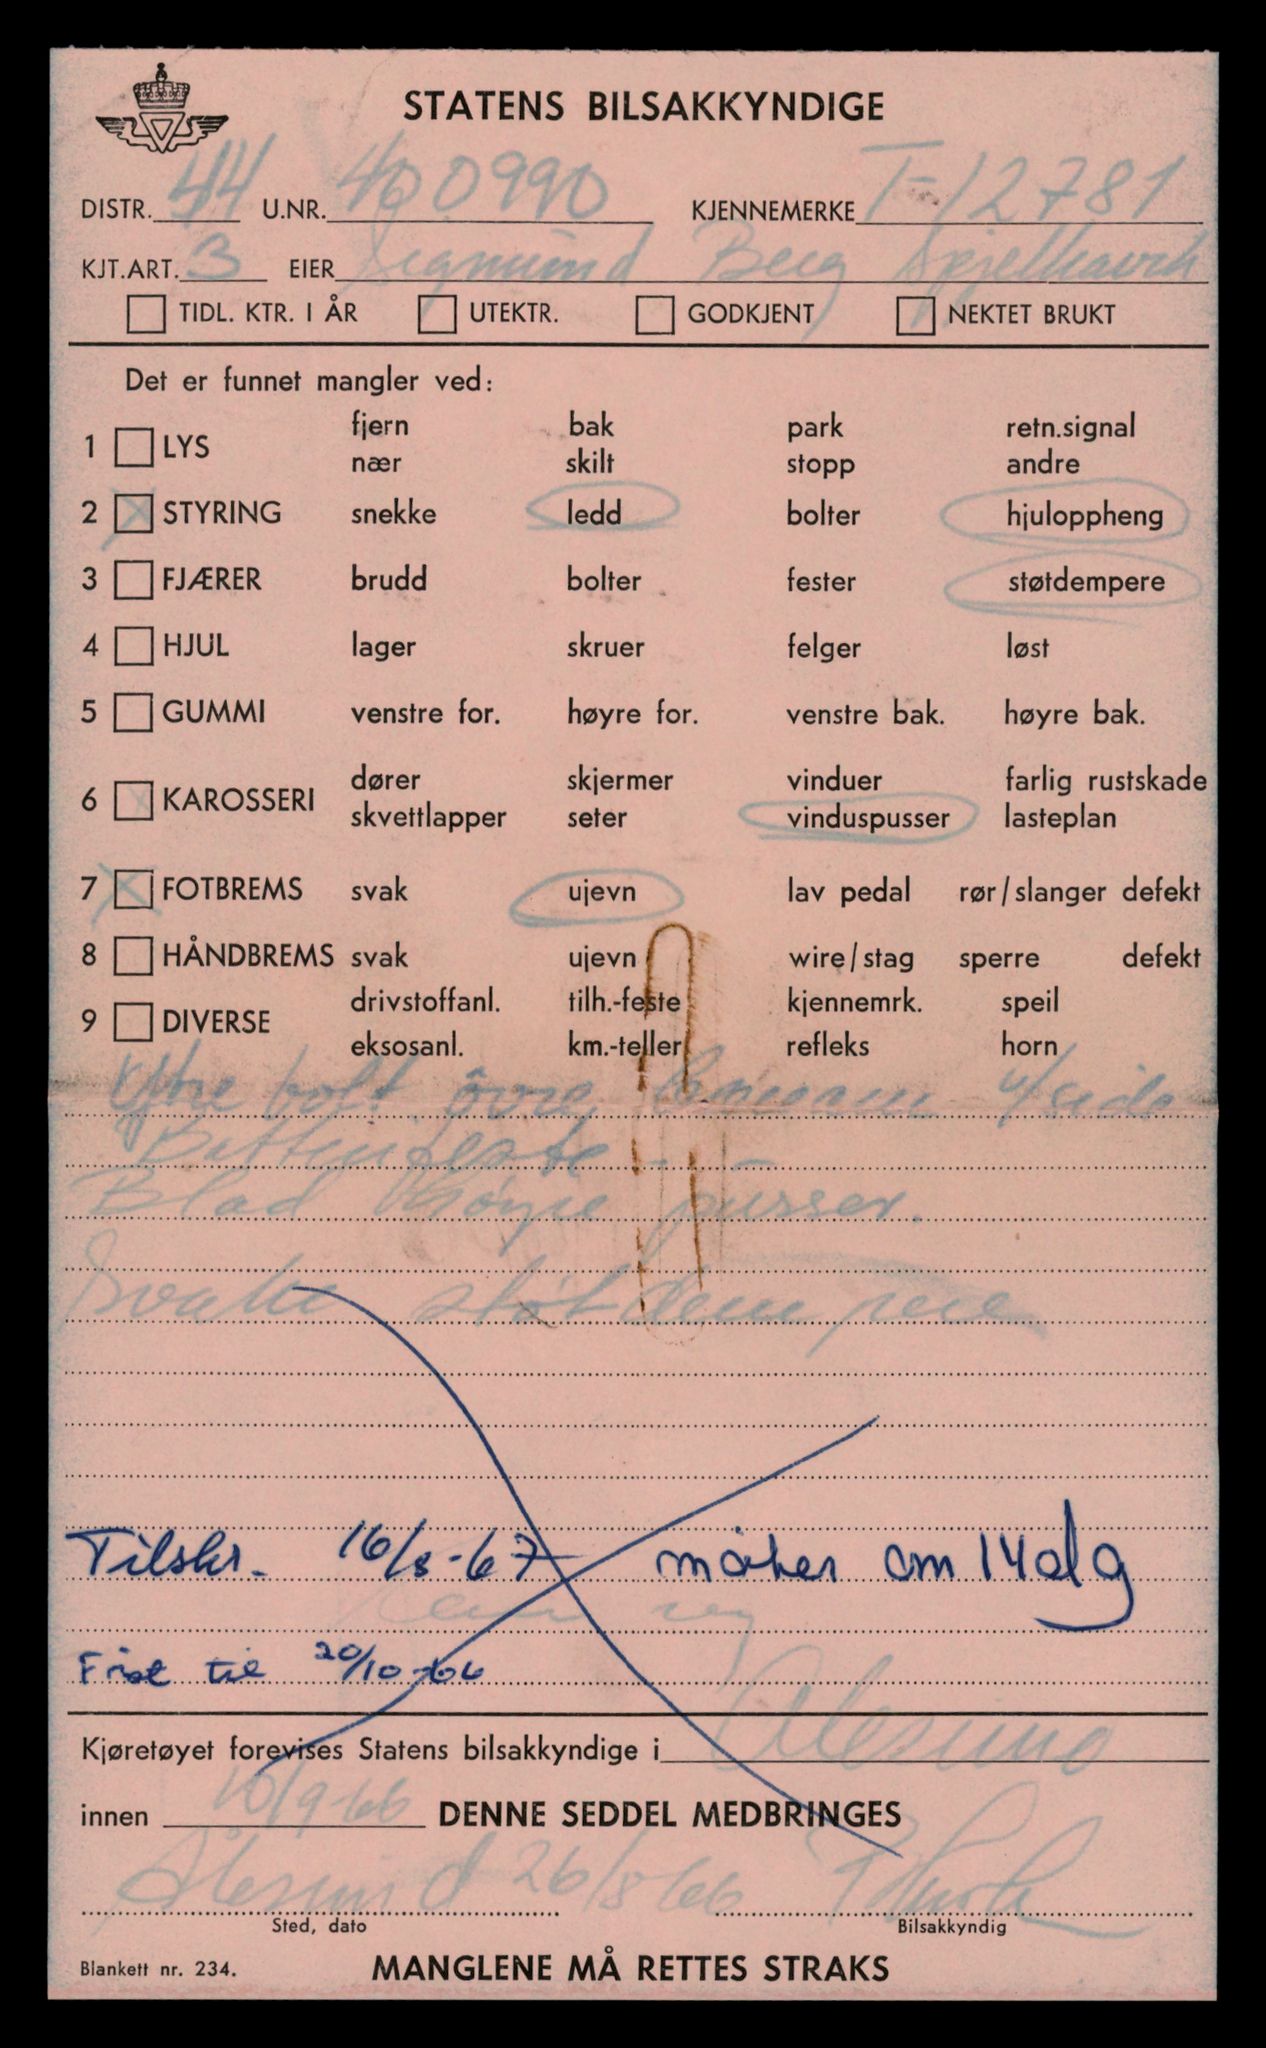 STATENS BILSAKKYNDIGE
DISTR. 44 U.NR. 400990 KJENNEMERKE T-12781
KJT.ART. 3 EIER Sigmund Berg
TIDL. KTR. I ÅR UTEKTR. GODKJENT NEKTET BRUKT
Det er funnet mangler ved:
fjern bak park retn.signal
1 LYS
nær skilt stopp andre
2 STYRING snekke ledd bolter hjuloppheng
3 FJÆRER brudd bolter fester støtdempere
4 HJUL lager skruer felger løst
5 GUMMI venstre for. høyre for. venstre bak. høyre bak.
dører skjermer vinduer farlig rustskade
6 KAROSSERI
skvettlapper seter vinduspusser lasteplan
7 FOTBREMS svak ujevn lav pedal rør/slanger defekt
8 HÅNDBREMS svak ujevn wire/stag sperre defekt
drivstoffanl. tilh.-feste kjennemrk. speil
9 DIVERSE
eksosanl. km.-teller refleks horn
Ytre bolt øvre v/side
Blad høyre pusser.
Svake støtdempere
Tilskr. 16/8-67 møter om 14 dg
Frist til 20/10-66
Kjøretøyet forevises Statens bilsakkyndige i Ålesund
innen 10/9-66 DENNE SEDDEL MEDBRINGES
Ålesund 26/8 66
Sted, dato Bilsakkyndig
Blankett nr. 234. MANGLENE MÅ RETTES STRAKS